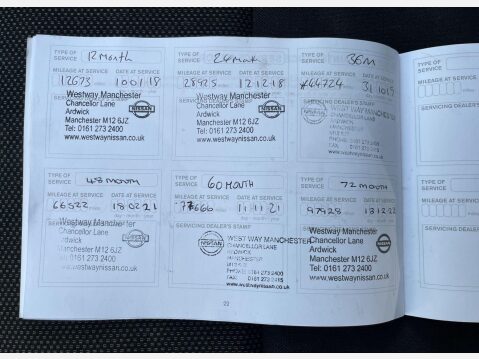 TYPE OF SERVICE 12 Month
MILEAGE AT SERVICE DATE AT SERVICE
12673 10 01 18
Westway Manchester
Chancellor Lane
Ardwick
Manchester M12 6JZ
Tel: 0161 273 2400
www.westwaynissan.co.uk
NISSAN
TYPE OF SERVICE 24 Month
MILEAGE AT SERVICE DATE AT SERVICE
28925 12 12 18
Westway Manchester
Chancellor Lane
Ardwick
Manchester M12 6JZ
Tel: 0161 273 2400
www.westwaynissan.co.uk
NISSAN
TYPE OF SERVICE 36M
MILEAGE AT SERVICE DATE AT SERVICE
SERVICING DEALER'S STAMP
TYPE OF SERVICE 48 MONTH
MILEAGE AT SERVICE DATE AT SERVICE
66522 18 02 21
Westway Manchester
Chancellor Lane
Ardwick
Manchester M12 6JZ
Tel: 0161 273 2400
www.westwaynissan.co.uk
TYPE OF SERVICE 60 MONTH
MILEAGE AT SERVICE DATE AT SERVICE
11 11 21
SERVICING DEALER'S STAMP
NISSAN
WEST WAY MANCHESTER
CHANCELLOR LANE
ARDWICK
MANCHESTER
PHONE: 0161 273 2400
FAX: 0161 273
www.westwaynissan.co.uk
TYPE OF SERVICE 72 MONTH
MILEAGE AT SERVICE DATE AT SERVICE
97928 13 12 22
Westway Manchester
Chancellor Lane
Ardwick
Manchester M12 6JZ
Tel: 0161 273 2400
www.westwaynissan.co.uk
NISSAN
22
TYPE OF SERVICE
MILEAGE AT SERVICE
SERVICING DEALER
TYPE OF SERVICE
MILEAGE AT SERVICE
SERVICING DEALER